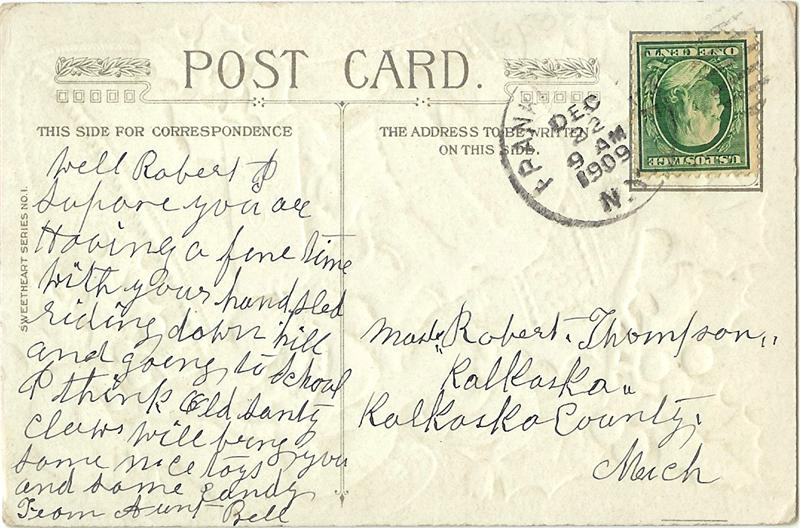 POST CARD.
THIS SIDE FOR CORRESPONDENCE
THE ADDRESS TO BE WRITTEN
ON THIS SIDE.
SWEETHEART SERIES NO. 1.
ONE CENT
U.S. POSTAGE
DEC
22
9 AM
1909
N.Y.
Well Robert I
supose you are
Having a fine time
with your hand sled
riding down hill
and going to school
I think Old Santy
claws will bring you
some nice toys
and some Candy
From Aunt Bell
Mast. Robert. Thompson,,
"Kalkaska"
Kalkaska County,
Mich